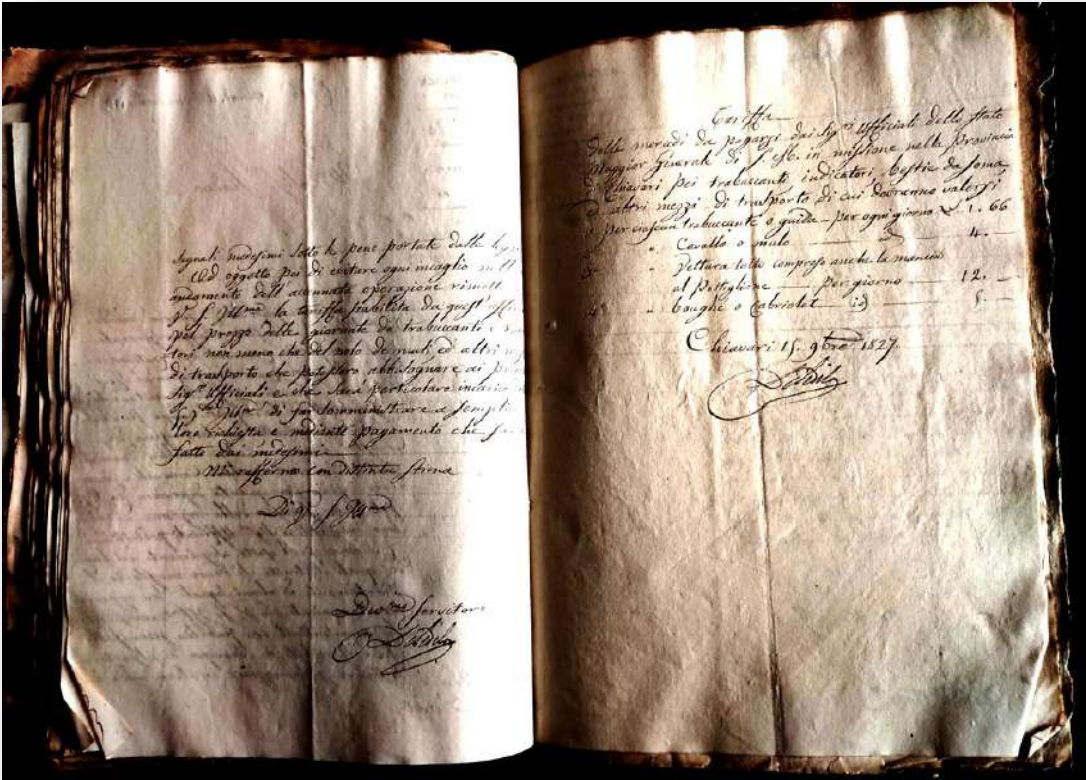 segnali medesimi sotto le pene portate dalle
Ad oggetto poi di evitare ogni incaglio
andamento dell'accennata operazione
V. S. Ill.ma la tariffa stabilita da quest'
pel prezzo delle giornate da trabuccanti e
tori non meno che del nolo de muli ed altri
di trasporto che potessero abbisognare ai
Sig.ri Ufficiali e che sarà particolare incarico
V. S. Ill.ma di far somministrare a semplice
loro richiesta e mediante pagamento che
fatto dai medesimi
Mi raffermo con distinta stima
Di V. S. Ill.ma
Dev.mo Servitore
Tariffa
Delle mercedi da pagarsi dai Sig.ri Ufficiali dello Stato
Maggior Generale di S. M. in missione nella Provincia
di Chiavari pei trabuccanti, indicatori, bestie da soma,
ed altri mezzi di trasporto di cui dovranno valersi
Per ciascun trabuccante o guida per ogni giorno £ 1. 66
" Cavallo o mulo id 4. —
" Vettura tutto compreso anche la mancia
al Postiglione per giorno 12. —
" boughè o Cabriolet id 8. —
Chiavari 15. 9bre 1827.